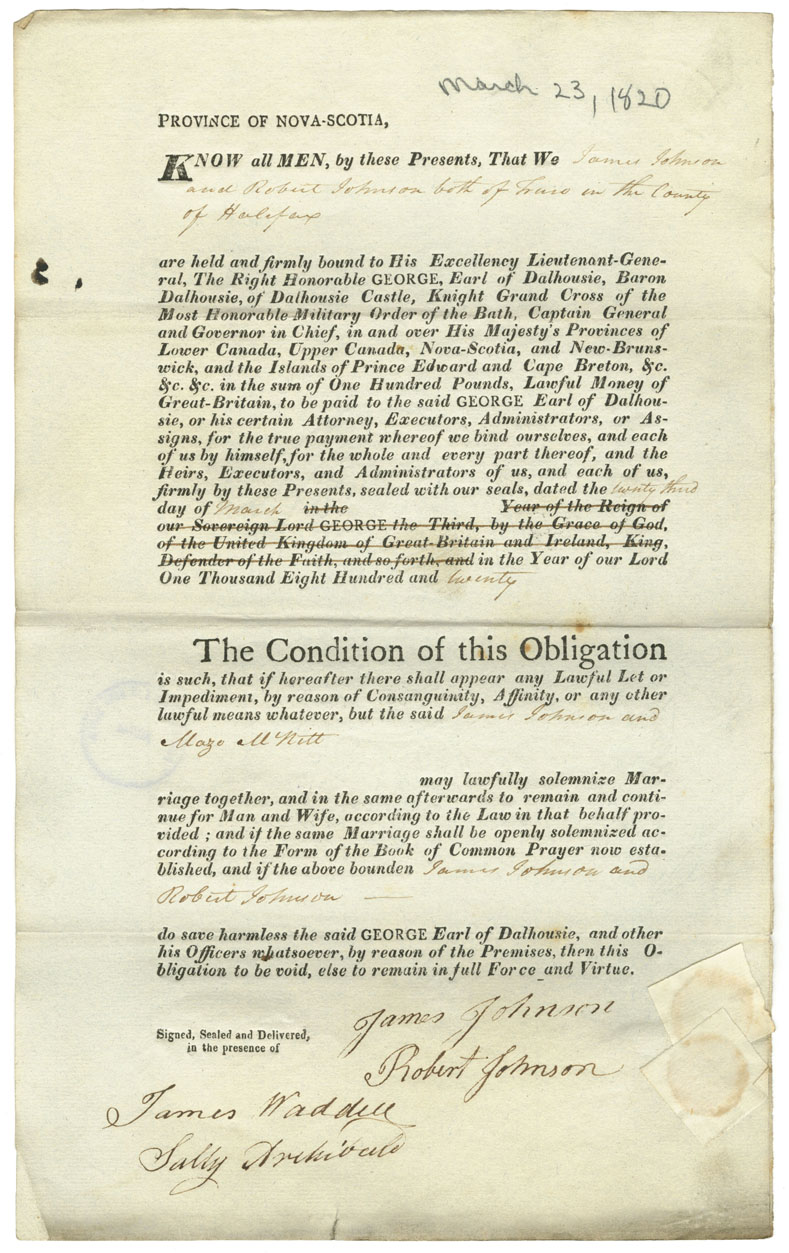 March 23, 1820
PROVINCE OF NOVA-SCOTIA,
KNOW all MEN, by these Presents, That We James Johnson
and Robert Johnson both of Truro in the County
of Halifax
are held and firmly bound to His Excellency Lieutenant-Gene-
ral, The Right Honorable GEORGE, Earl of Dalhousie, Baron
Dalhousie, of Dalhousie Castle, Knight Grand Cross of the
Most Honorable Military Order of the Bath, Captain General
and Governor in Chief, in and over His Majesty's Provinces of
Lower Canada, Upper Canada, Nova-Scotia, and New-Bruns-
wick, and the Islands of Prince Edward and Cape Breton, &c.
&c. &c. in the sum of One Hundred Pounds, Lawful Money of
Great-Britain, to be paid to the said GEORGE Earl of Dalhou-
sie, or his certain Attorney, Executors, Administrators, or As-
signs, for the true payment whereof we bind ourselves, and each
of us by himself, for the whole and every part thereof, and the
Heirs, Executors, and Administrators of us, and each of us,
firmly by these Presents, sealed with our seals, dated the twenty third
day of March in the Year of the Reign of
our Sovereign Lord GEORGE the Third, by the Grace of God,
of the United Kingdom of Great-Britain and Ireland, King,
Defender of the Faith, and so forth, and in the Year of our Lord
One Thousand Eight Hundred and twenty
The Condition of this Obligation
is such, that if hereafter there shall appear any Lawful Let or
Impediment, by reason of Consanguinity, Affinity, or any other
lawful means whatever, but the said James Johnson and
Mazo McNitt
may lawfully solemnize Mar-
riage together, and in the same afterwards to remain and conti-
nue for Man and Wife, according to the Law in that behalf pro-
vided ; and if the same Marriage shall be openly solemnized ac-
cording to the Form of the Book of Common Prayer now esta-
blished, and if the above bounden James Johnson and
Robert Johnson —
do save harmless the said GEORGE Earl of Dalhousie, and other
his Officers whatsoever, by reason of the Premises, then this O-
bligation to be void, else to remain in full Force and Virtue.
James Johnson
Signed, Sealed and Delivered,
in the presence of
Robert Johnson
James Waddell
Sally Archibald